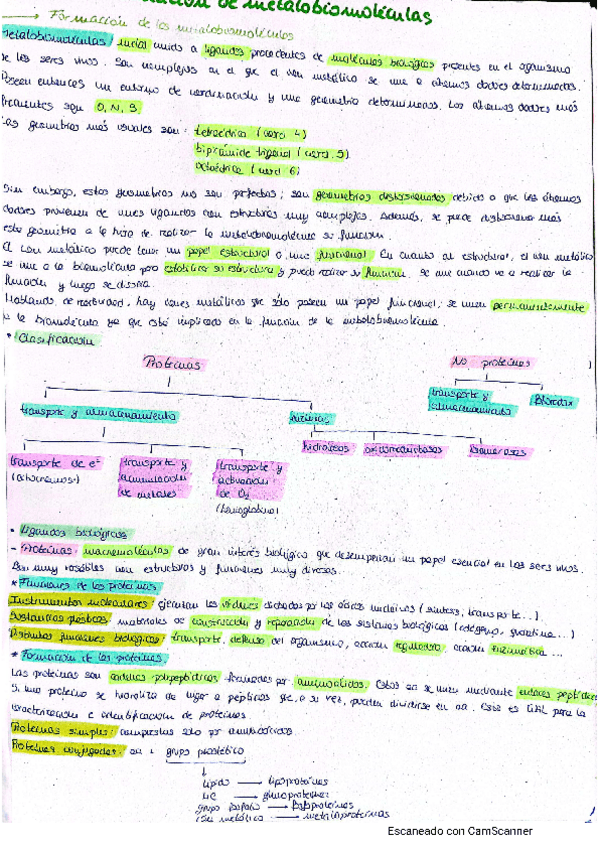 de metalobiomoléculas
Formación de las metalobiomoléculas
Metalobiomoléculas: unido a ligandos procedentes de moléculas biológicas presentes en el organismo
de los seres vivos. Son complejos en el que el ion metálico se une a átomos dadores determinados.
Poseen entonces un entorno de coordinación y una geometría determinadas. Los átomos dadores más
frecuentes son O, N, S.
Las geometrías más usuales son: tetraédrica (coord 4)
bipirámide trigonal (coord. 5)
octaédrica (coord 6)
Sin embargo, estas geometrías no son perfectas; son geometrías distorsionadas debido a que los átomos
dadores provienen de unos ligandos con estructuras muy complejas. Además, se puede distorsionar más
esta geometría a la hora de realizar la metalobiomolécula su función.
El ion metálico puede tener un papel estructural o uno funcional. En cuanto al estructural, el ion metálico
se une a la biomolécula para estabilizar su estructura y pueda realizar su función. Se une cuando va a realizar la
función y luego se disocia.
Hablando de reactividad, hay iones metálicos que sólo poseen un papel funcional; se unen permanentemente
a la biomolécula ya que está implicado en la función de la metalobiomolécula.
• Clasificación
Proteínas
No proteínas
transporte y almacenamiento
enzimas
transporte y
almacenamiento
hidrolasas
oxidorreductasas
isomerasas
transporte de e-
(citocromos)
transporte y
acumulación
de metales
transporte y
activación
de O2
(hemoglobina)
• Ligandos biológicos
- Proteínas: macromoléculas de gran interés biológico que desempeñan un papel esencial en los seres vivos.
Son muy variables con estructuras y funciones muy diversas.
* Funciones de las proteínas
Instrumentos moleculares: ejecutan las órdenes dictadas por los ácidos nucleicos (síntesis, transporte...).
Sustancias plásticas: materiales de construcción y reparación de los sistemas biológicos (colágeno, queratina...)
Distintas funciones biológicas: transporte, defensa del organismo, acción reguladora, acción enzimática...
* Formación de las proteínas.
Las proteínas son cadenas polipeptídicas formadas por aminoácidos. Estos aa se unen mediante enlaces peptídicos
Si una proteína se hidroliza da lugar a péptidos que, a su vez, pueden dividirse en aa. Esto es útil para la
caracterización e identificación de proteínas.
Proteínas simples: compuestas sólo por aminoácidos.
Proteínas conjugadas: aa + grupo prostético
Lípido → lipoproteínas
HC → glucoproteínas
grupo fosfato → fosfoproteínas
ion metálico → metaloproteínas
Escaneado con CamScanner